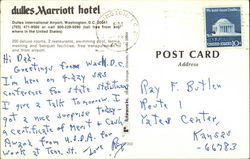 dulles Marriott hotel
Dulles International Airport, Washington, D.C. 20041
(703) 471-9500 or call 800-228-9290 (toll free from any-
where in the United States)
200 deluxe rooms, 2 restaurants, swimming pool,
meeting and banquet facilities, free transportation
and from airport.
POST CARD
Address
Hi Dad-
Greetings from Wash. D.C.
I'm here on 4-day
conference for state
I give a talk tomorrow. I
got a nice surprise today -
a Certificate of Merit & Cash
Award from U.S.D.A. for
work at Tenn. St. Love Roy
Ray F. Butler
Route 1
Yates Center,
Kansas
66783
10¢